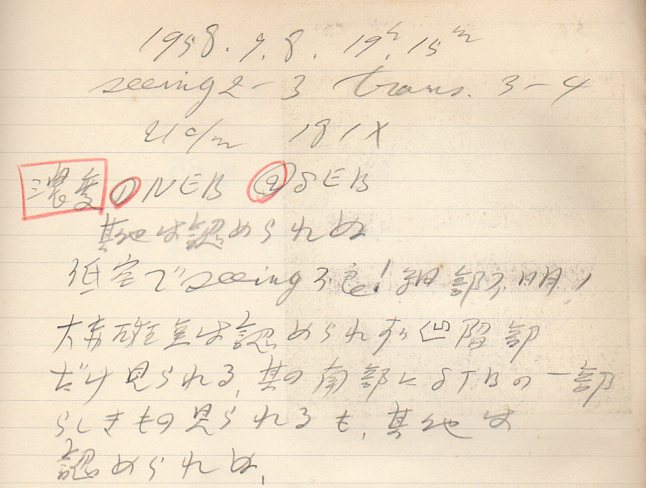 1958. 9. 8. 19h 15m
seeing 2-3 trans. 3-4
21cm 181X
濃度 ①NEB ②SEB
其他は認められぬ
低空でseeing不良!細部不明!
大赤確々は認められずり凹留部
だけ見られる,其の南部にSTBの一部
らしきもの見られるも,其他は
認められぬ,